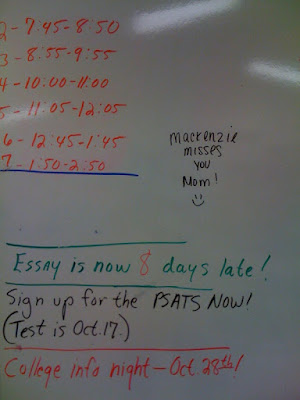 2 - 7:45-8:50
3 - 8:55-9:55
4 - 10:00-11:00
5 - 11:05-12:05
6 - 12:45-1:45
7 - 1:50-2:50
Mackenzie
misses
you
Mom!
Essay is now 8 days late!
Sign up for the PSATS NOW!
(Test is Oct. 17.)
College info night - Oct. 28th!